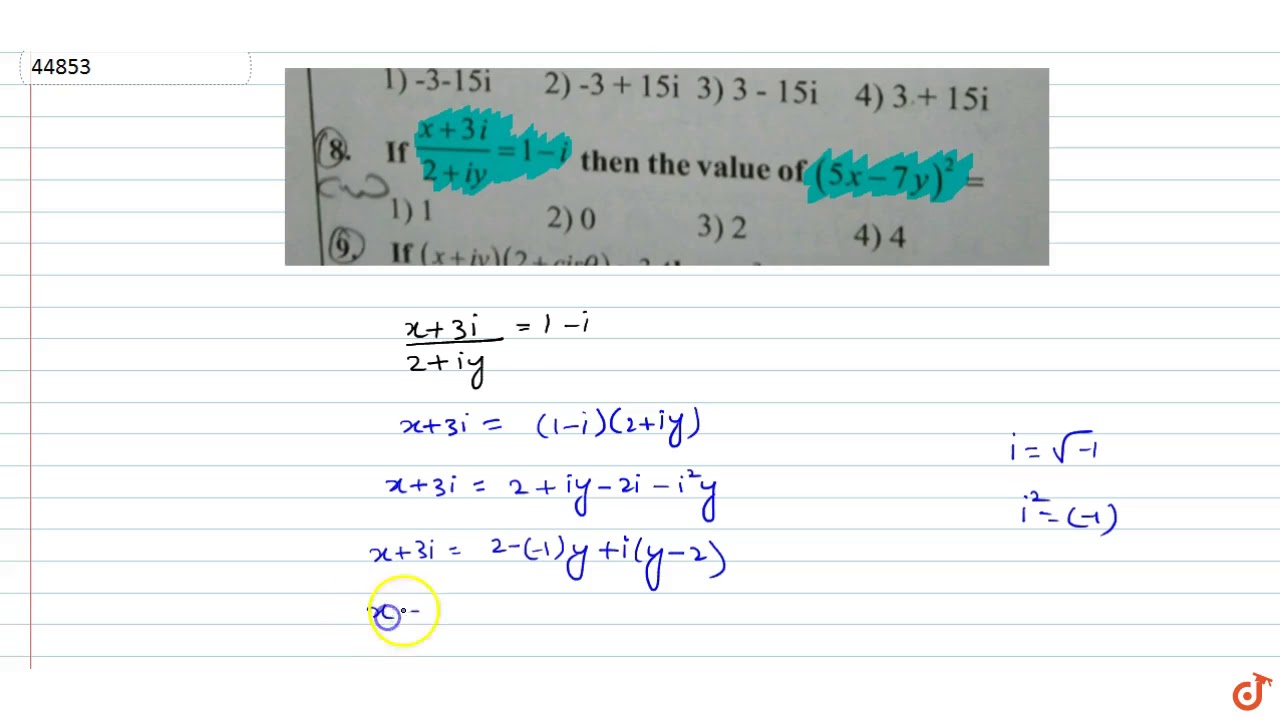 44853
1) -3-15i 2) -3 + 15i 3) 3 - 15i 4) 3 + 15i
8. If (x+3i)/(2+iy) = 1-i then the value of (5x-7y)² =
1) 1 2) 0 3) 2 4) 4
9. If (x+iy)(2+
(x+3i)/(2+iy) = 1-i
x+3i = (1-i)(2+iy)
i = √-1
x+3i = 2+iy-2i-i²y
i² = (-1)
x+3i = 2-(-1)y+i(y-2)
x